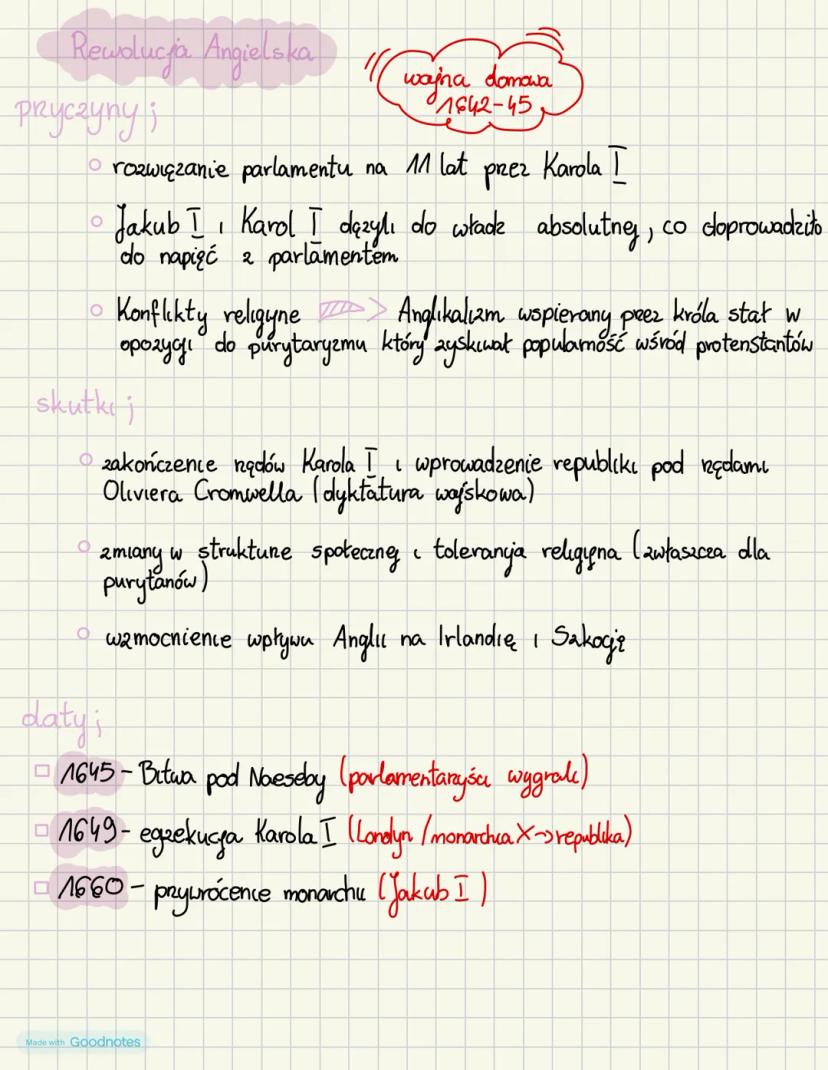 Rewolucja Angielska
wojna domowa
1642-45
pryczyny;
rozwięzanie parlamentu na 11 lat przez Karola I
Jakub I i Karol I dężyli do władz absolutnej, co doprowadziło
do napięć z parlamentem
Konflikty religijne Anglikalizm wspierany przez króla stał w
opozycji do purytaryzmu który zyskiwał popularność wśród protenstantów
skutki;
zakończenie rządów Karola I i wprowadzenie republiki pod rządami
Oliviera Cromwella (dyktatura wojskowa)
zmiany w strukturze społecznej i tolerancja religijna (zwłaszcza dla
purytanów)
wzmocnienie wpływu Anglii na Irlandię i Szkocję
daty;
1645 - Bitwa pod Naeseby (parlamentaryści wygrali)
1649 - egzekucja Karola I (Londyn / monarchia X → republika)
1660 - przywrócenie monarchii (Jakub I)
Made with Goodnotes